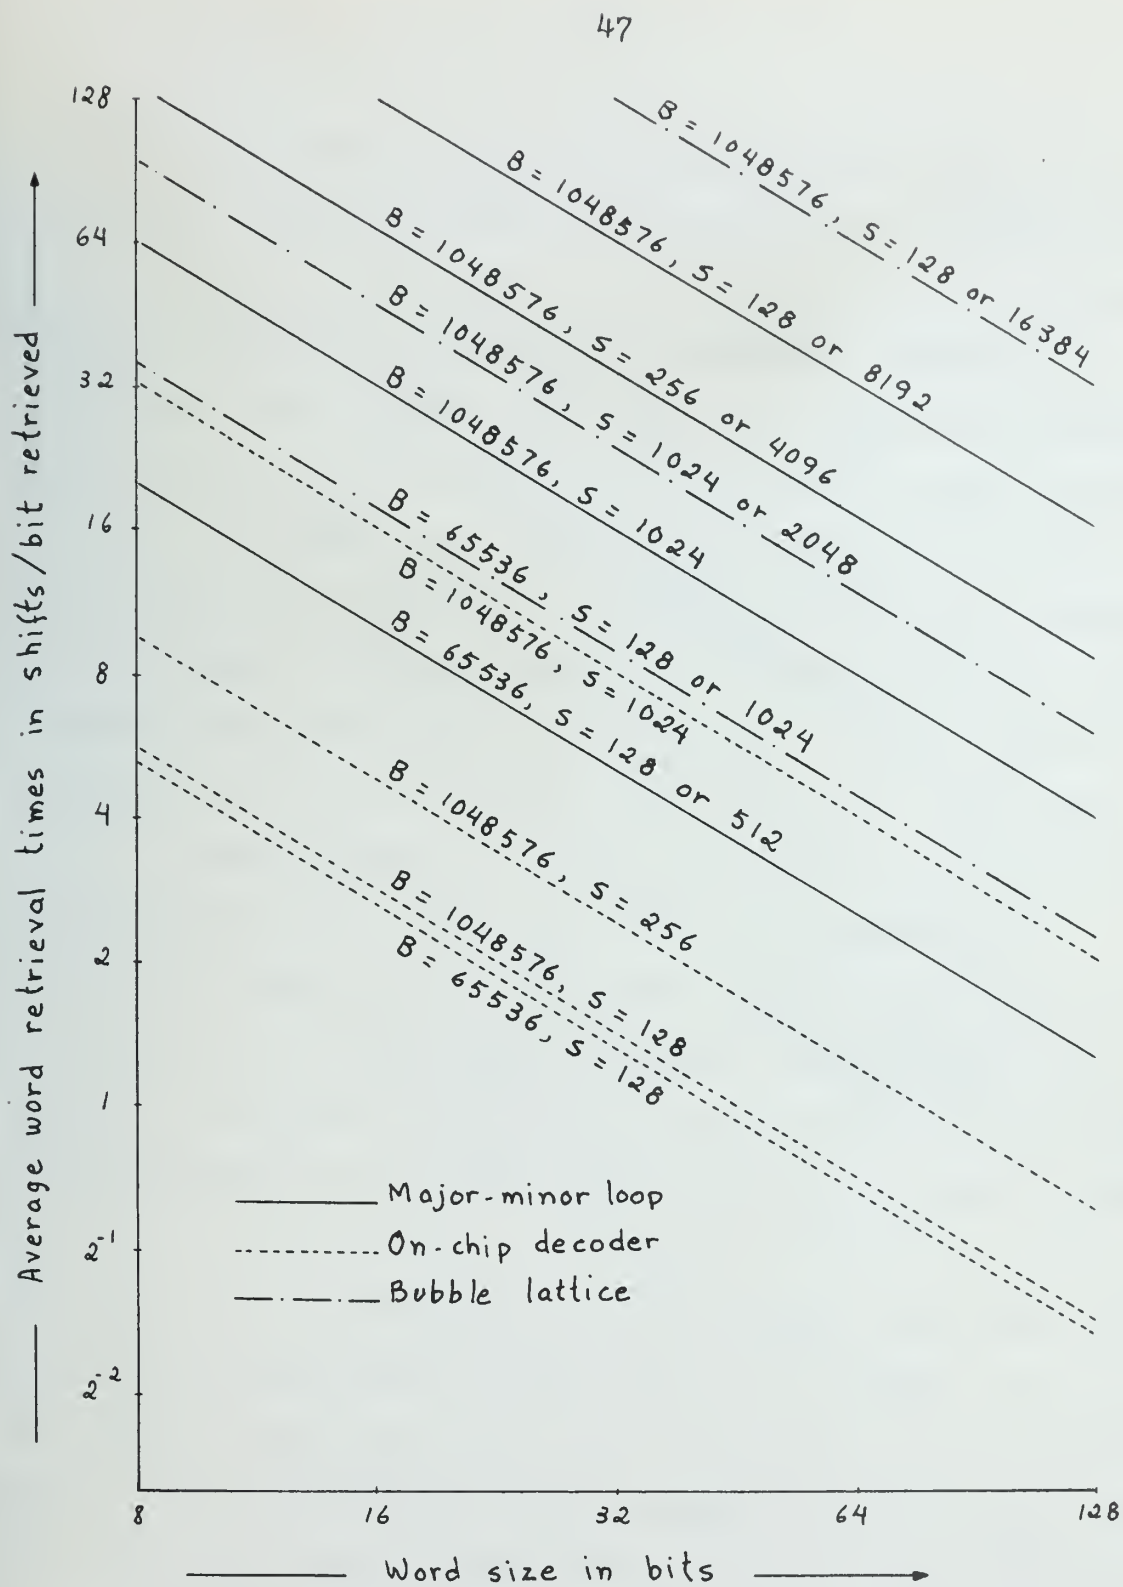 47
128
64
32
16
8
4
2
1
2^-1
2^-2
Average word retrieval times in shifts/bit retrieved
B = 1048576, S = 128 or 16384
B = 1048576, S = 128 or 8192
B = 1048576, S = 256 or 4096
B = 1048576, S = 1024 or 2048
B = 1048576, S = 1024
B = 65536, S = 128 or 1024
B = 1048576, S = 1024
B = 65536, S = 128 or 512
B = 1048576, S = 256
B = 1048576, S = 128
B = 65536, S = 128
Major-minor loop
On-chip decoder
Bubble lattice
8 16 32 64 128
Word size in bits